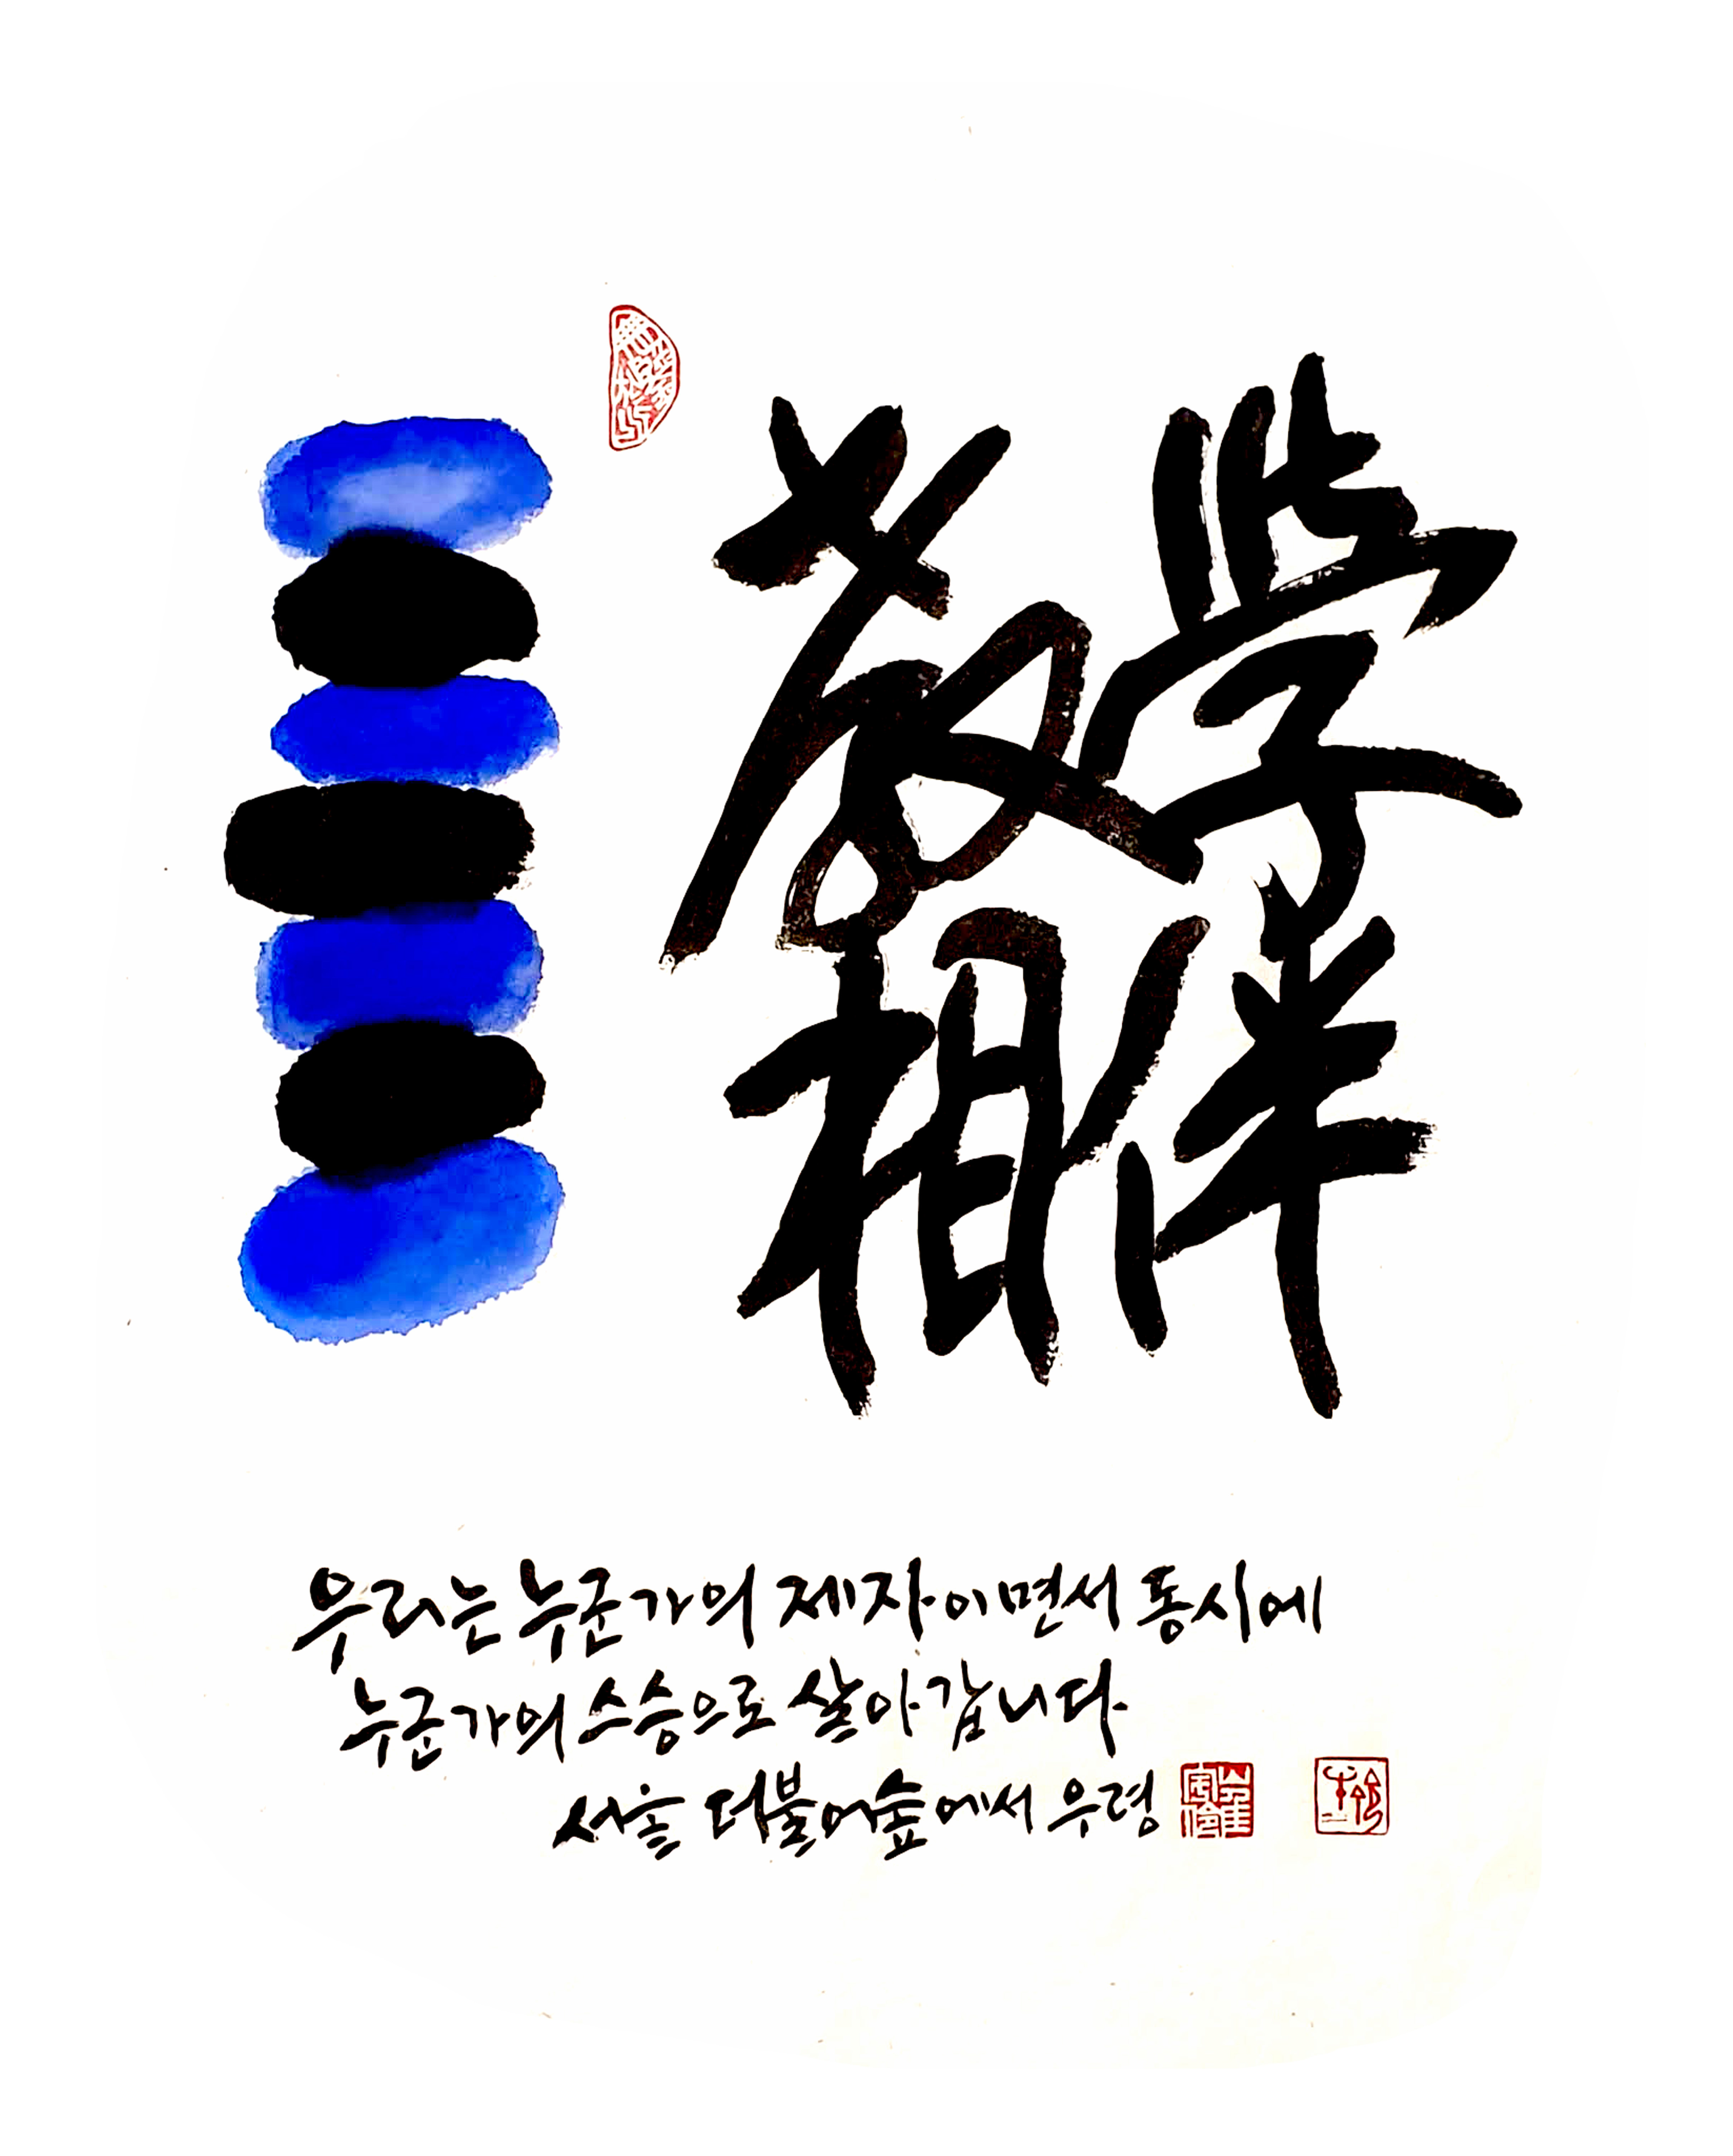 教學
相伴
우리는 누군가의 제자이면서 동시에
누군가의 스승으로 살아갑니다
서울 더불어숲에서 우령